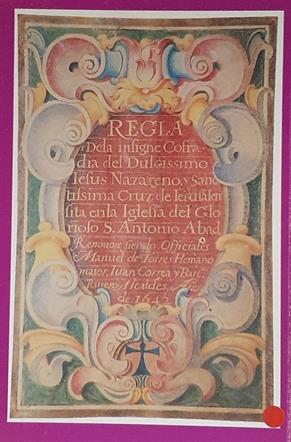 REGLA
Dela insigne Cofra-
dia del Dulcissimo
Iesus Nazareno, y Sanc
tissima Cruz de Ierusalen
sita en la Iglesia del Glo
rioso S. Antonio Abad
Renouose siendo Officiales
Manuel de Torres Hermano
maior, Iuan Correa y Barl.
Riuero Alcaldes, Año
de 1642